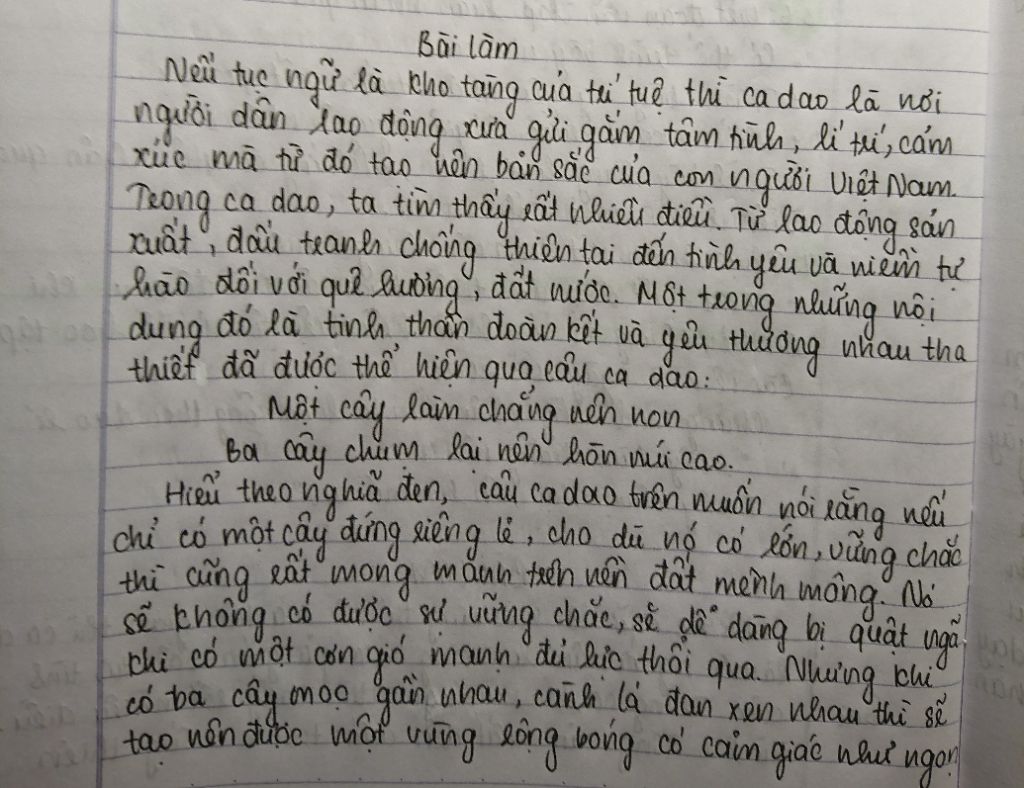 Bài làm
Nếu tục ngữ là kho tàng của trí tuệ thì ca dao là nơi
người dân lao động xưa gửi gắm tâm tình, lí trí, cảm
xúc mà từ đó tạo nên bản sắc của con người Việt Nam.
Trong ca dao, ta tìm thấy rất nhiều điều. Từ lao động sản
xuất, đấu tranh chống thiên tai đến tình yêu và niềm tự
hào đối với quê hương, đất nước. Một trong những nội
dung đó là tinh thần đoàn kết và yêu thương nhau tha
thiết đã được thể hiện qua câu ca dao:
Một cây làm chẳng nên non
Ba cây chụm lại nên hòn núi cao.
Hiểu theo nghĩa đen, câu ca dao trên muốn nói rằng nếu
chỉ có một cây đứng riêng lẻ, cho dù nó có lớn, vững chắc
thì cũng rất mong manh trên nền đất mênh mông. Nó
sẽ không có được sự vững chắc, sẽ dễ dàng bị quật ngã
khi có một cơn gió mạnh đủ lực thổi qua. Nhưng khi
có ba cây mọc gần nhau, cành lá đan xen nhau thì sẽ
tạo nên được một vùng rộng bóng có cảm giác như ngọn